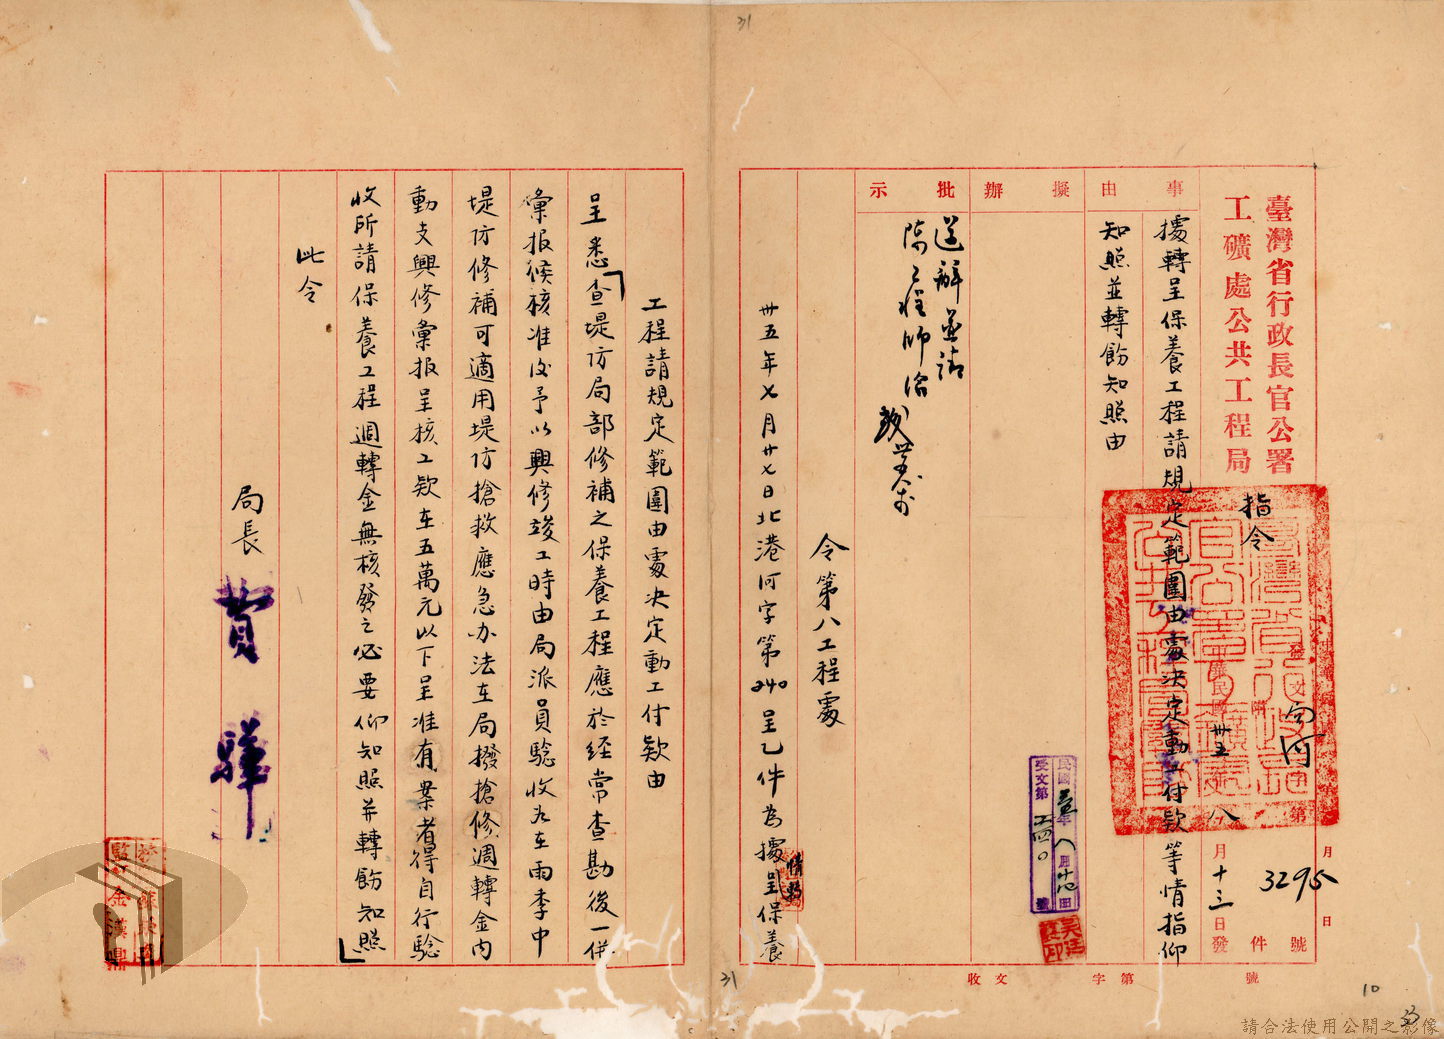 31
臺灣省行政長官公署
工礦處公共工程局
指令
事由
擬辦
批示
據轉呈保養工程請規定範圍由處決定動工付款等情指仰
知照並轉飭知照由
送辦並請
陳工程師洽
中華民國卅五年八月十三日發
發文
字第3295號
件
月
日
民國卅五年八月
受文第二四〇號
收文 字第 號
令第八工程處
卅五年七月廿七日北港河字第240呈乙件為據情轉呈保養
工程請規定範圍由處決定動工付款由
呈悉「查堤防局部修補之保養工程應於經常查勘後一併
彙報候核准後予以興修竣工時由局派員驗收為在雨季中
堤防修補可適用堤防搶救應急办法在局撥搶修週轉金內
動支興修彙報呈核工款在五萬元以下呈准有案者得自行驗
收所請保養工程週轉金無核發之必要仰知照并轉飭知照」
此令
局長 費驊
監
金漢鼎
31
10
33
請合法使用公開之影像